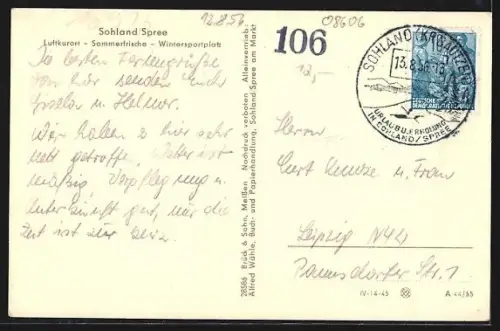 13.8.56
08606
Sohland Spree
Luftkurort - Sommerfrische - Wintersportplatz
106
12,-
Die besten Feriengrüße
von hier senden Euch
Gisela und Helmut.
Wir haben es hier sehr
nett getroffen, Wetter ist
mäßig, Verpflegung u.
Unterkunft gut, nur die
Zeit ist zu kurz.
28586 Brück & Sohn, Meißen Nachdruck verboten Alleinvertrieb:
Alfred Wähle, Buch- und Papierhandlung, Sohland-Spree am Markt
SOHLAND
13.8.56
URLAUB U. ERHOLUNG
IN SOHLAND/SPREE
DEUTSCHE
Herrn
Kurt u. Frau
Leipzig N 42
Str. 1
IV-14-45
A 44/55